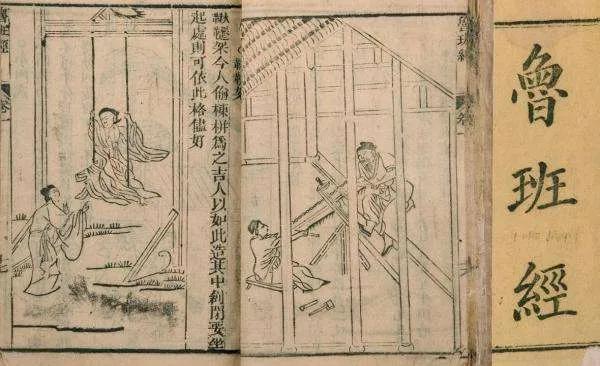 魯班經
鞦韆架今人偷棟栟爲之吉人以如此造其中創閒要坐
起處則可依此格儘好
魯班經
卷一